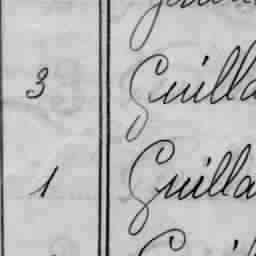 3 Guilla
1 Guilla